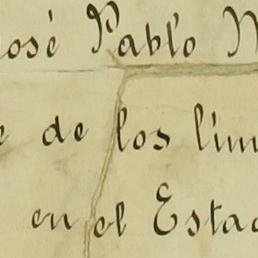 José Pablo
de los lím
en el Estad